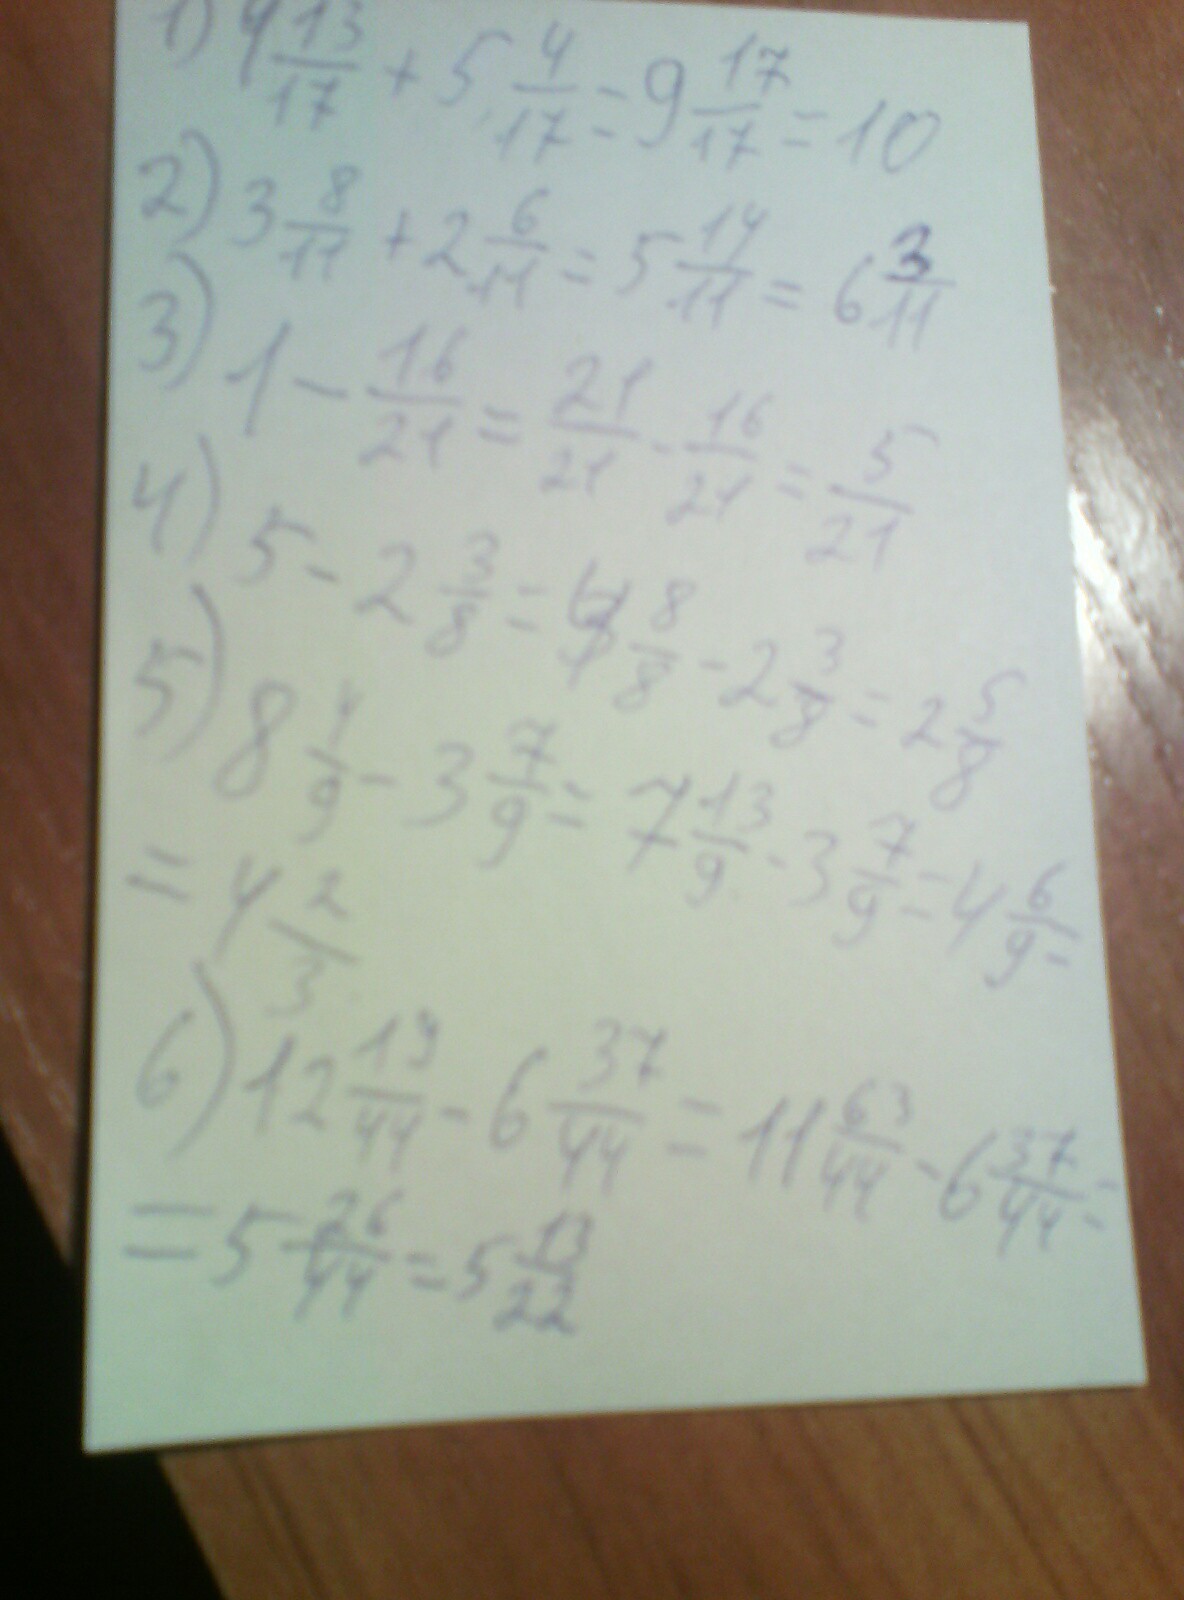 1) 4 13/17 + 5 4/17 = 9 17/17 = 10
2) 3 8/11 + 2 6/11 = 5 14/11 = 6 3/11
3) 1 - 16/21 = 21/21 - 16/21 = 5/21
4) 5 - 2 3/8 = 4 8/8 - 2 3/8 = 2 5/8
5) 8 4/9 - 3 7/9 = 7 13/9 - 3 7/9 = 4 6/9 =
= 4 2/3
6) 12 19/44 - 6 37/44 = 11 63/44 - 6 37/44 =
= 5 26/44 = 5 13/22